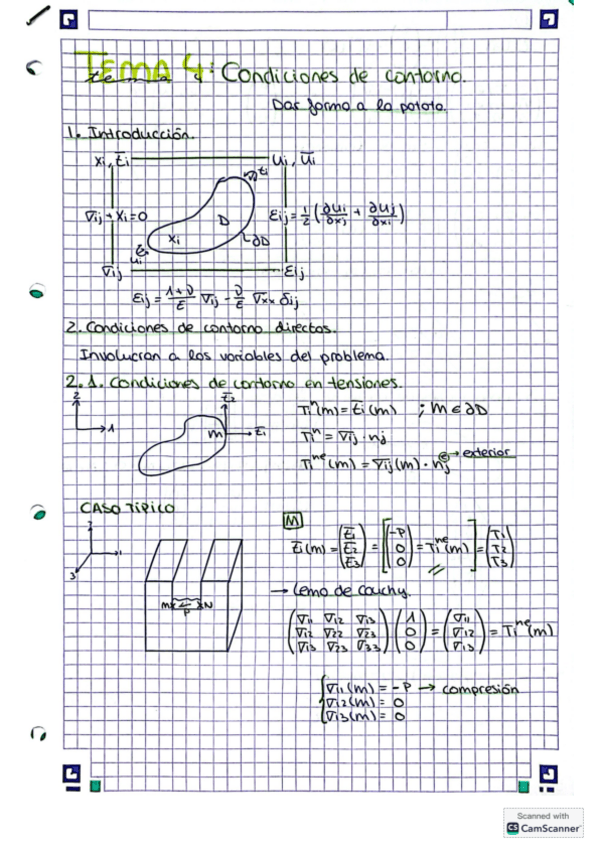 TEMA 4: Condiciones de contorno.
Dar forma a la patata.
1. Introducción.
Xi, t̅i
Ui, U̅i
t̅i
σij + Xi = 0
D
εij = 1/2 (∂Ui/∂xj + ∂Uj/∂xi)
Xi
∂D
u̅i
σij
εij
εij = 1+ν/E σij - ν/E σkk δij
2. Condiciones de contorno directas.
Involucran a las variables del problema.
2.1. Condiciones de contorno en tensiones.
2
1
t̅2
M
t̅1
Ti^n(m) = t̅i(m) ; m ∈ ∂D
Ti^n = σij · nj
Ti^ne(m) = σij(m) · nj^e → exterior
CASO TÍPICO
2
1
3
M
P
N
M
t̅i(m) = (t̅1 t̅2 t̅3) = [-P 0 0] = Ti^ne(m) = (T1 T2 T3)
→ Lema de Cauchy.
(σ11 σ12 σ13
σ12 σ22 σ23
σ13 σ23 σ33) (1 0 0) = (σ11 σ12 σ13) = Ti^ne(m)
σ11(m) = -P → compresión
σ12(m) = 0
σ13(m) = 0
Scanned with
CS CamScanner